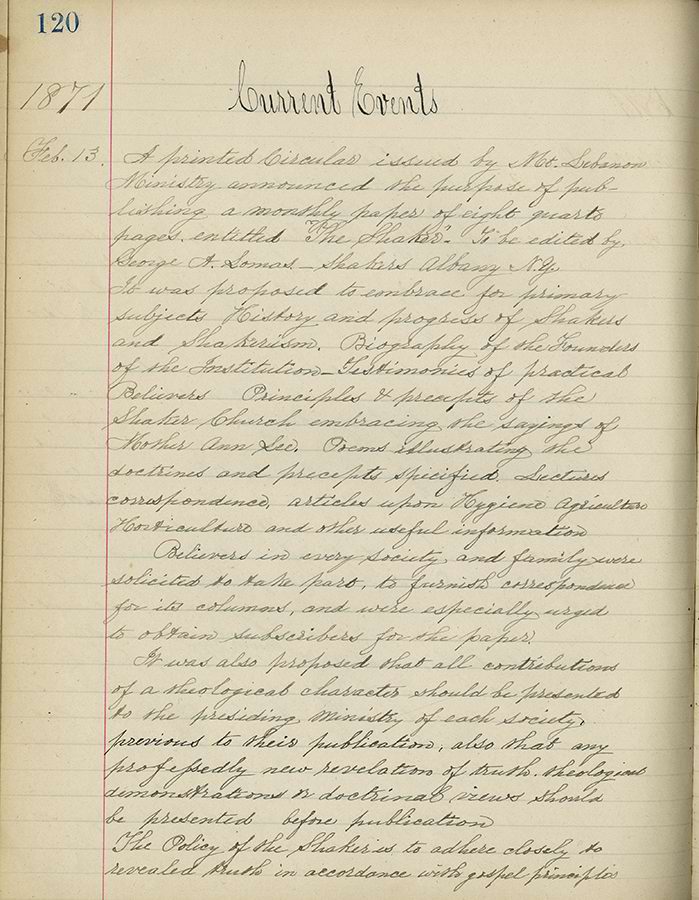 120
1871
Current Events
Feb. 13. A printed Circular issued by Mt. Lebanon
Ministry announced the purpose of pub-
lishing a monthly paper of eight quarto
pages entitled "The Shaker". To be edited by
George A. Lomas — Shakers Albany N.Y.
It was proposed to embrace for primary
subjects History and progress of Shakers
and Shakerism. Biography of the Founders
of the Institution — Testimonies of practical
Believers Principles & precepts of the
Shaker Church embracing the sayings of
Mother Ann Lee. Poems illustrating the
doctrines and precepts specified. Lectures
correspondence, articles upon Hygiene Agriculture
Horticulture and other useful information
Believers in every society and family were
solicited to take part, to furnish correspondence
for its columns, and were especially urged
to obtain subscribers for the paper.
It was also proposed that all contributions
of a theological character should be presented
to the presiding Ministry of each society,
previous to their publication, also that any
professedly new revelation of truth, theological
demonstrations or doctrinal views should
be presented before publication
The Policy of the Shaker is to adhere closely to
revealed truth in accordance with gospel principles